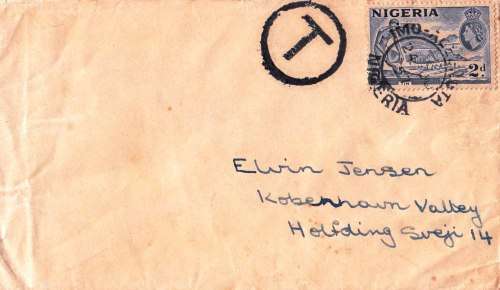 NIGERIA
2d
T
NIGERIA
Elvin Jensen
Kobenhavn Valbey
Holfding Sveji 14